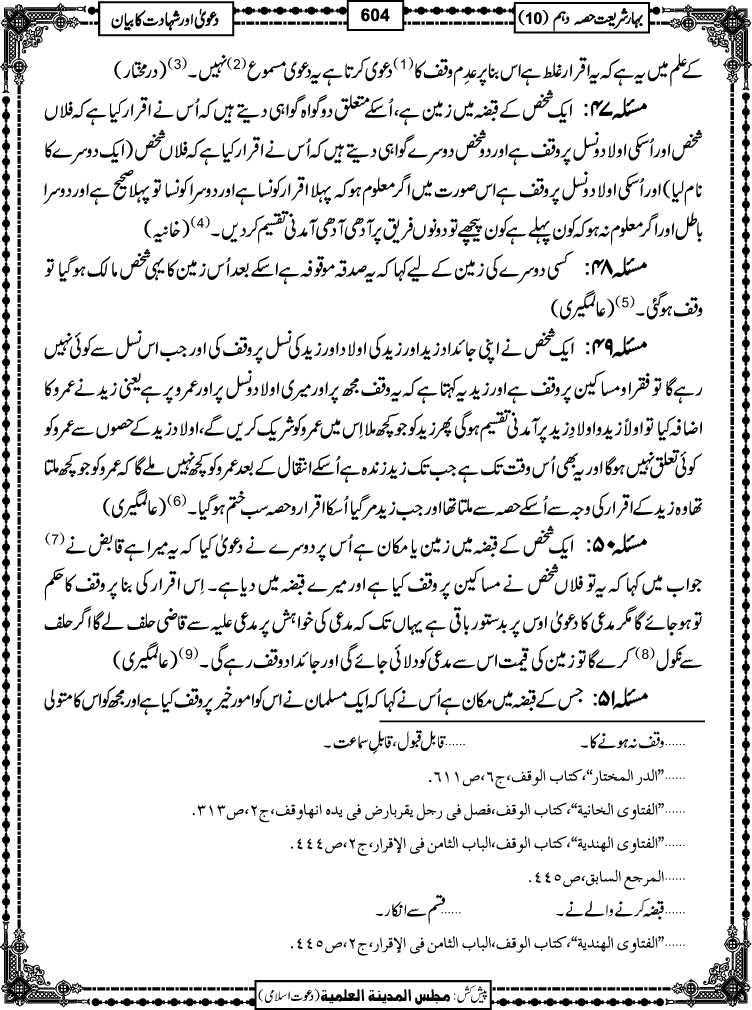 بہار شریعت حصہ دہم (10)
604
دعویٰ اور شہادت کا بیان
کے علم میں یہ ہے کہ یہ اقرار غلط ہے اس بنا پر عدمِ وقف کا (1) دعوی کرتا ہے یہ دعوی مسموع (2) نہیں۔ (3) (درمختار)
مسئلہ ۴۷: ایک شخص کے قبضہ میں زمین ہے، اُسکے متعلق دو گواہ گواہی دیتے ہیں کہ اُس نے اقرار کیا ہے کہ فلاں
شخص اور اُسکی اولاد ونسل پر وقف ہے اور دو شخص دوسرے گواہی دیتے ہیں کہ اُس نے اقرار کیا ہے کہ فلاں شخص (ایک دوسرے کا
نام لیا) اور اُسکی اولاد ونسل پر وقف ہے اس صورت میں اگر معلوم ہو کہ پہلا اقرار کونسا ہے اور دوسرا کونسا تو پہلا صحیح ہے اور دوسرا
باطل اور اگر معلوم نہ ہو کہ کون پہلے ہے کون پیچھے تو دونوں فریق پر آدھی آدھی آمدنی تقسیم کر دیں۔ (4) (خانیہ)
مسئلہ ۴۸: کسی دوسرے کی زمین کے لیے کہا کہ یہ صدقہ موقوفہ ہے اسکے بعد اُس زمین کا یہی شخص مالک ہوگیا تو
وقف ہوگئی۔ (5) (عالمگیری)
مسئلہ ۴۹: ایک شخص نے اپنی جائداد زید اور زید کی اولاد اور زید کی نسل پر وقف کی اور جب اس نسل سے کوئی نہیں
رہے گا تو فقرا و مساکین پر وقف ہے اور زید یہ کہتا ہے کہ یہ وقف مجھ پر اور میری اولاد ونسل پر اور عمرو پر ہے یعنی زید نے عمرو کا
اضافہ کیا تو اولاً زید و اولادِ زید پر آمدنی تقسیم ہوگی پھر زید کو جو کچھ ملا اِس میں عمرو کو شریک کریں گے، اولادِ زید کے حصوں سے عمرو کو
کوئی تعلق نہیں ہوگا اور یہ بھی اُس وقت تک ہے جب تک زید زندہ ہے اُسکے انتقال کے بعد عمرو کو کچھ نہیں ملے گا کہ عمرو کو جو کچھ ملتا
تھا وہ زید کے اقرار کی وجہ سے اُسکے حصہ سے ملتا تھا اور جب زید مر گیا اُسکا اقرار و حصہ سب ختم ہوگیا۔ (6) (عالمگیری)
مسئلہ ۵۰: ایک شخص کے قبضہ میں زمین یا مکان ہے اُس پر دوسرے نے دعویٰ کیا کہ یہ میرا ہے قابض نے (7)
جواب میں کہا کہ یہ تو فلاں شخص نے مساکین پر وقف کیا ہے اور میرے قبضہ میں دیا ہے۔ اِس اقرار کی بنا پر وقف کا حکم
تو ہو جائے گا مگر مدعی کا دعویٰ اوس پر بدستور باقی ہے یہاں تک کہ مدعی کی خواہش پر مدعی علیہ سے قاضی حلف لے گا اگر حلف
سے نکول (8) کرے گا تو زمین کی قیمت اس سے مدعی کو دلائی جائے گی اور جائداد وقف رہے گی۔ (9) (عالمگیری)
مسئلہ ۵۱: جس کے قبضہ میں مکان ہے اُس نے کہا کہ ایک مسلمان نے اس کو امورِ خیر پر وقف کیا ہے اور مجھ کو اس کا متولی
......وقف نہ ہونے کا۔ ......قابل قبول، قابلِ سماعت۔
......"الدر المختار"، کتاب الوقف، ج٦، ص٦١١.
......"الفتاوی الخانیة"، کتاب الوقف، فصل فی رجل یقربارض فی یدہ انھا وقف، ج٢، ص٣١٣.
......"الفتاوی الھندیة"، کتاب الوقف، الباب الثامن فی الإقرار، ج٢، ص٤٤٤.
......المرجع السابق، ص٤٤٥.
......قبضہ کرنے والے نے۔ ......قسم سے انکار۔
......"الفتاوی الھندیة"، کتاب الوقف، الباب الثامن فی الإقرار، ج٢، ص٤٤٥.
پیش کش: مجلس المدینۃ العلمیۃ (دعوتِ اسلامی)